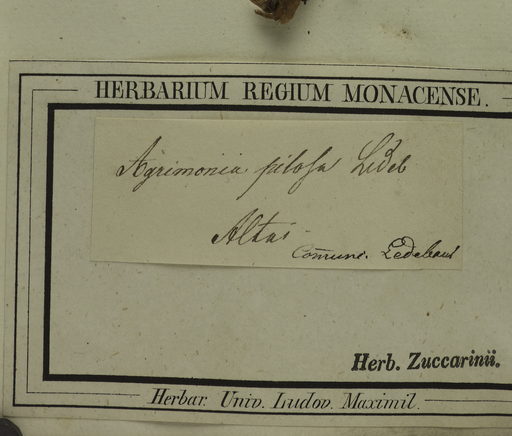 HERBARIUM REGIUM MONACENSE.
Agrimonia pilosa Ledeb
Altai
Com̄unic. Ledebour
Herb. Zuccarinii.
Herbar. Univ. Ludov. Maximil.